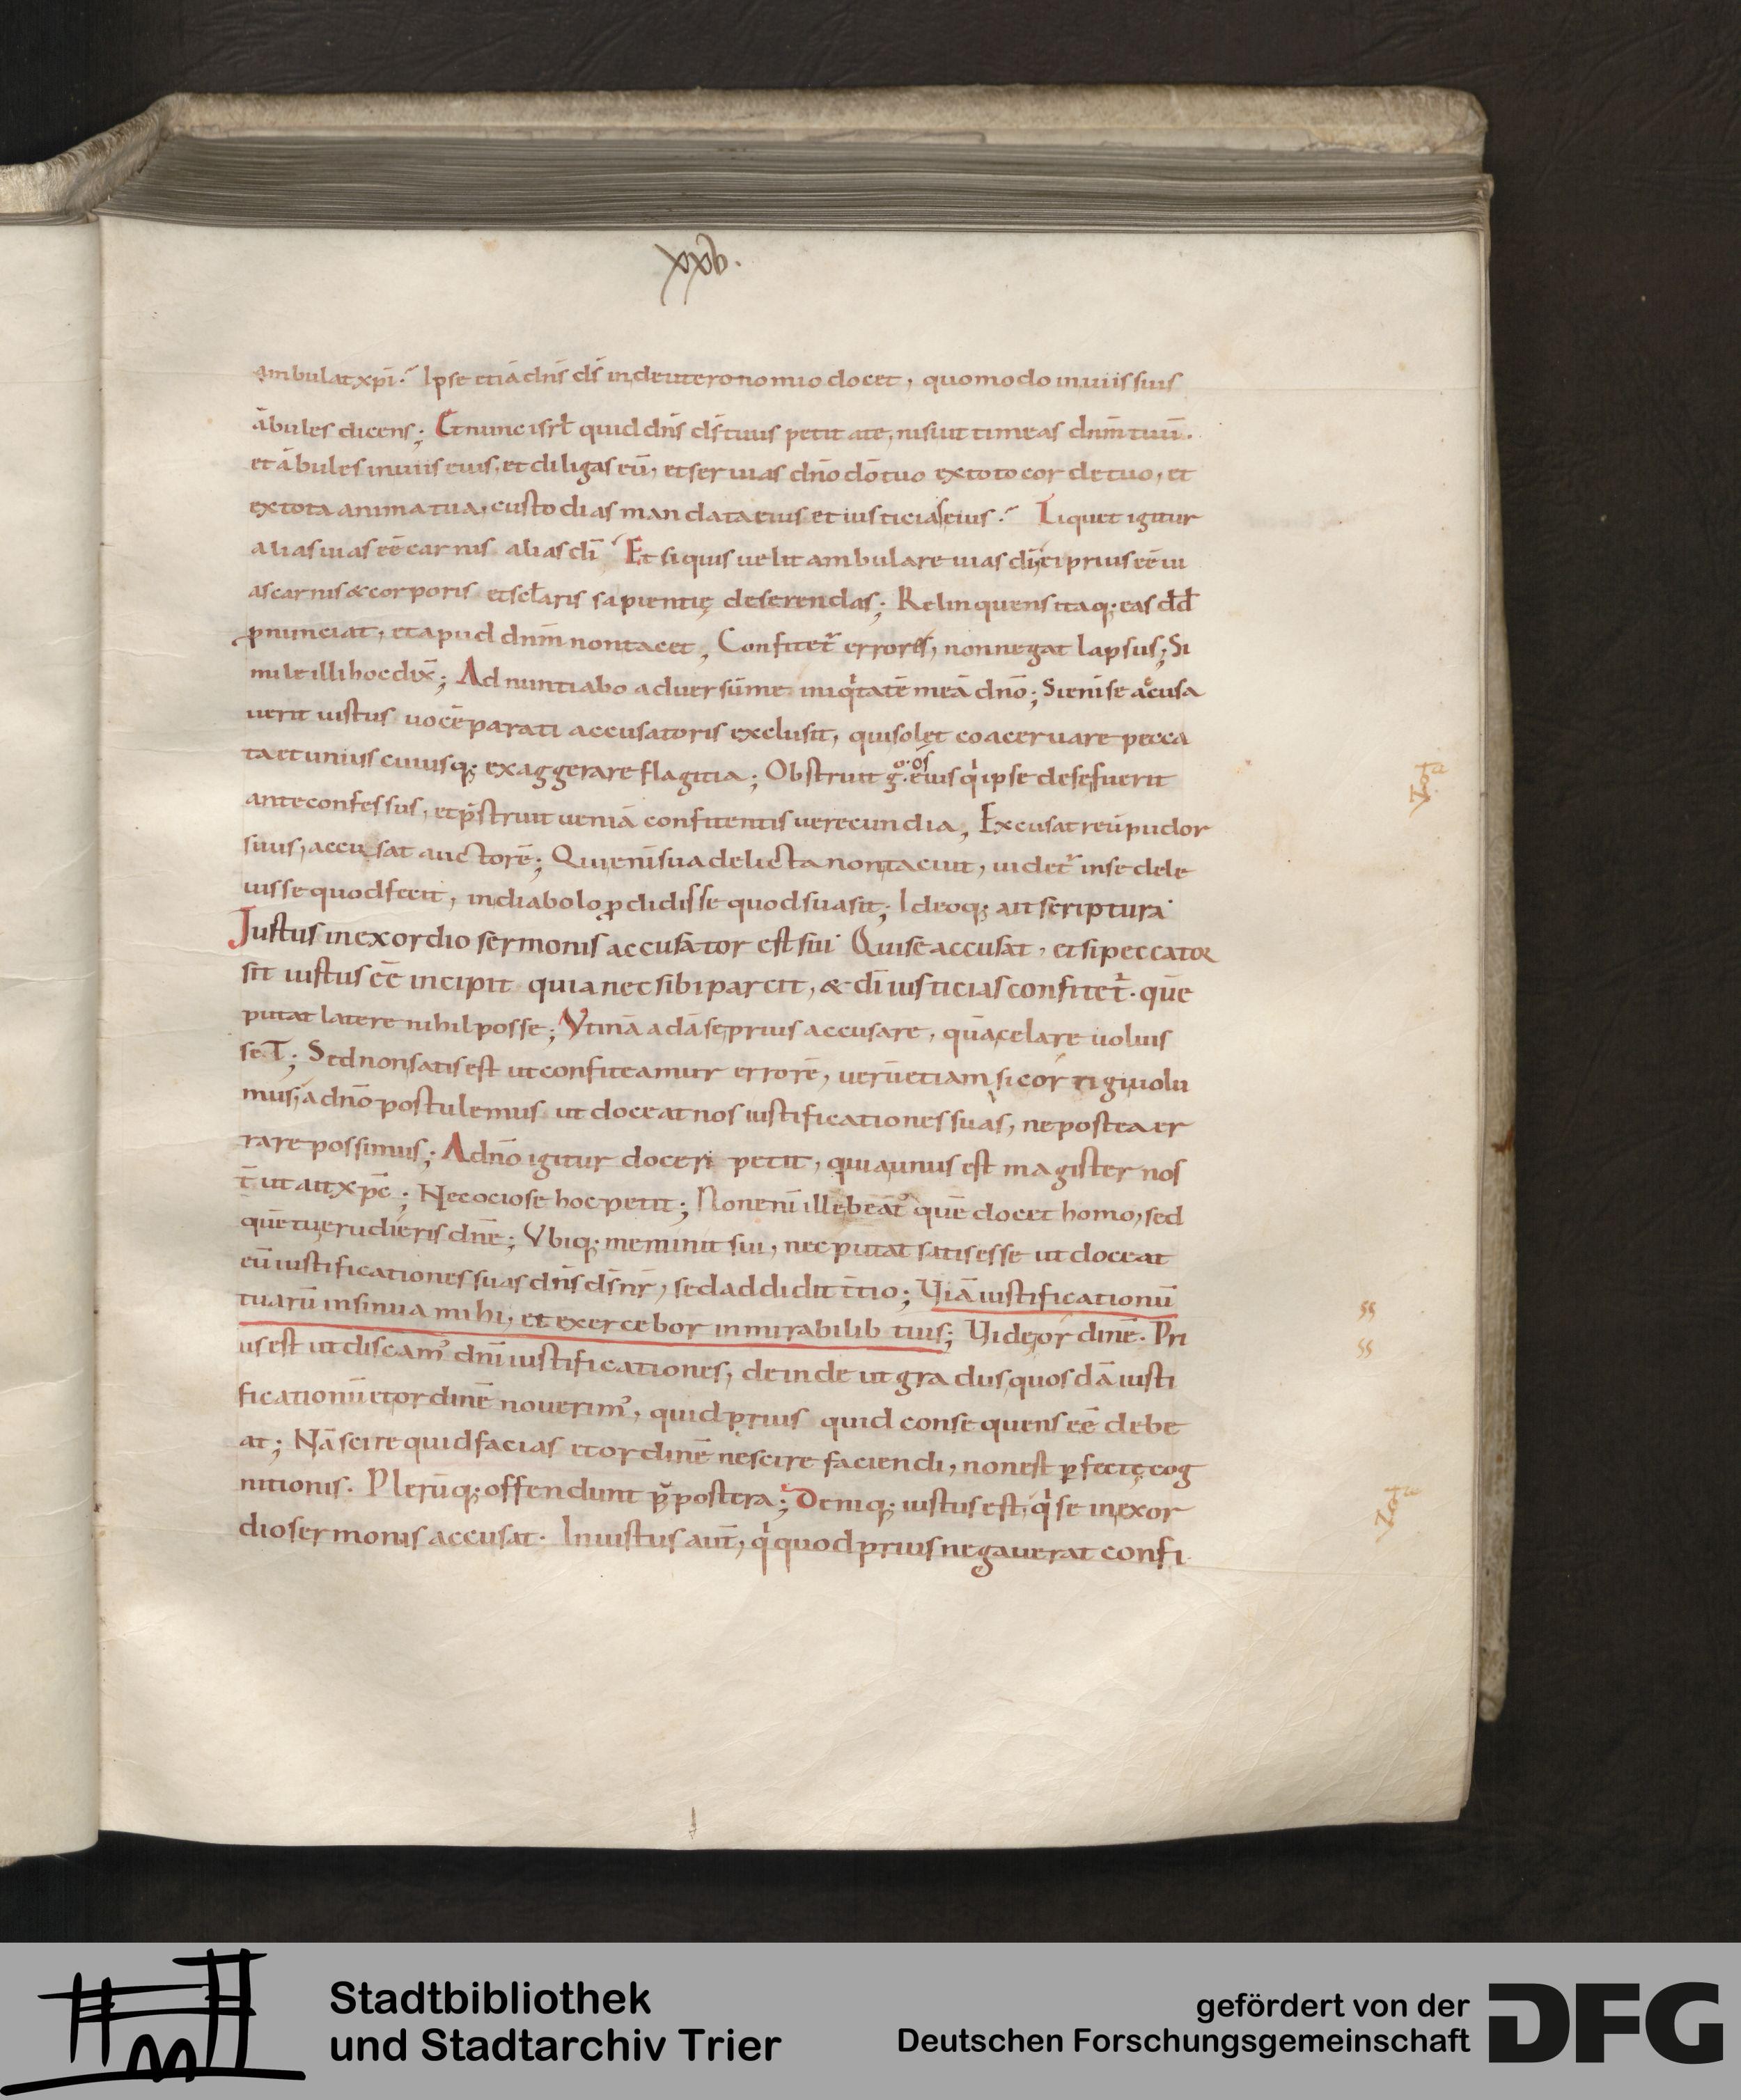 xxv.
ambulat xpi. Ipse etiā dn̄s ds̄ in deuteronomio docet, quomodo in uiis suis
ābules dicens; Et nunc isrł quid dn̄s ds̄ tuus petit a te, nisi ut timeas dn̄m tuū.
et ābules in uiis eius, et diligas eū, et seruias dn̄o dō tuo ex toto corde tuo, et
ex tota anima tua, custodias mandata eius et iusticias eius. Liquet igitur
alias uias eē carnis alias dī Et si quis uelit ambulare uias dī, ei prius eē ui
as carnis & corporis et sclaris sapientię deserendas; Relinquens itaq; eas dd̄
pnunciat, et apud dnm̄ non tacet, Confitet̄ errores, non negat lapsus; Si
mile illi hoc dix̄; Adnuntiabo aduersūme iniqitatē meā dn̄o; Si eni᷆ se accusa
uerit iustus uocē parati accusatoris exclusit, qui solet coaceruare pecca
ta et uniuscuiusq; exaggerare flagitia; Obstruit g̊ os eius qi ipse de se fuerit
ante confessus, et p̄struit ueniā confitentis uerecundia, Excusat reū pudor
suus, accusat auctorē; Qui eni᷆ sua delicta non tacuit, uidet̄ in se dele
uisse quod fecit, in diabolo pdidisse quod suasit; Ideoq; ait scriptura
Justus in exordio sermonis accusator est sui Qui se accusat, et si peccator
sit iustus eē incipit quia nec sibi parcit, & dī iusticias confitet̄. quē
putat latere nihil posse; Vtinā adā se prius accusare, quā celare uoluis
set; Sed non satis est ut confiteamur errorē, uerū etiam si corrigi uolu
mus, a dn̄o postulemus ut doceat nos iustificationes suas, ne postea er
rare possimus; A dn̄o igitur doceri petit, quia unus est magister nos
t̄ ut ait xpc̄; Nec ociose hoc petit; Non eni᷆ ille beāt᷒ quē docet homo, sed
quē tu erudieris dn̄e; Vbiq; meminit sui, nec putat satis esse ut doceat
eū iustificationes suas dn̄s ds̄ nr̄, sed addidit t̄tio; Viā iustificationū
tuarū insinua mihi, et exercebor in mirabilib tuis; Vide ordinē. Pri
us est ut discam᷒ dn̄i iustificationes, deinde ut gradus quosdā iusti
ficationū et ordinē nouerim᷒, quid prius quid consequens eē debe
at; Nā scire quid facias et ordinē nescire faciendi, non est pfectę cog
nitionis. Plerūq; offendunt p̄postera; Deniq; iustus est, qi se in exor
dio sermonis accusat. Iniustus aut̄, qi quod prius negauerat confi
Nota
ss
ss
Nota
Stadtbibliothek
und Stadtarchiv Trier
gefördert von der
Deutschen Forschungsgemeinschaft
DFG